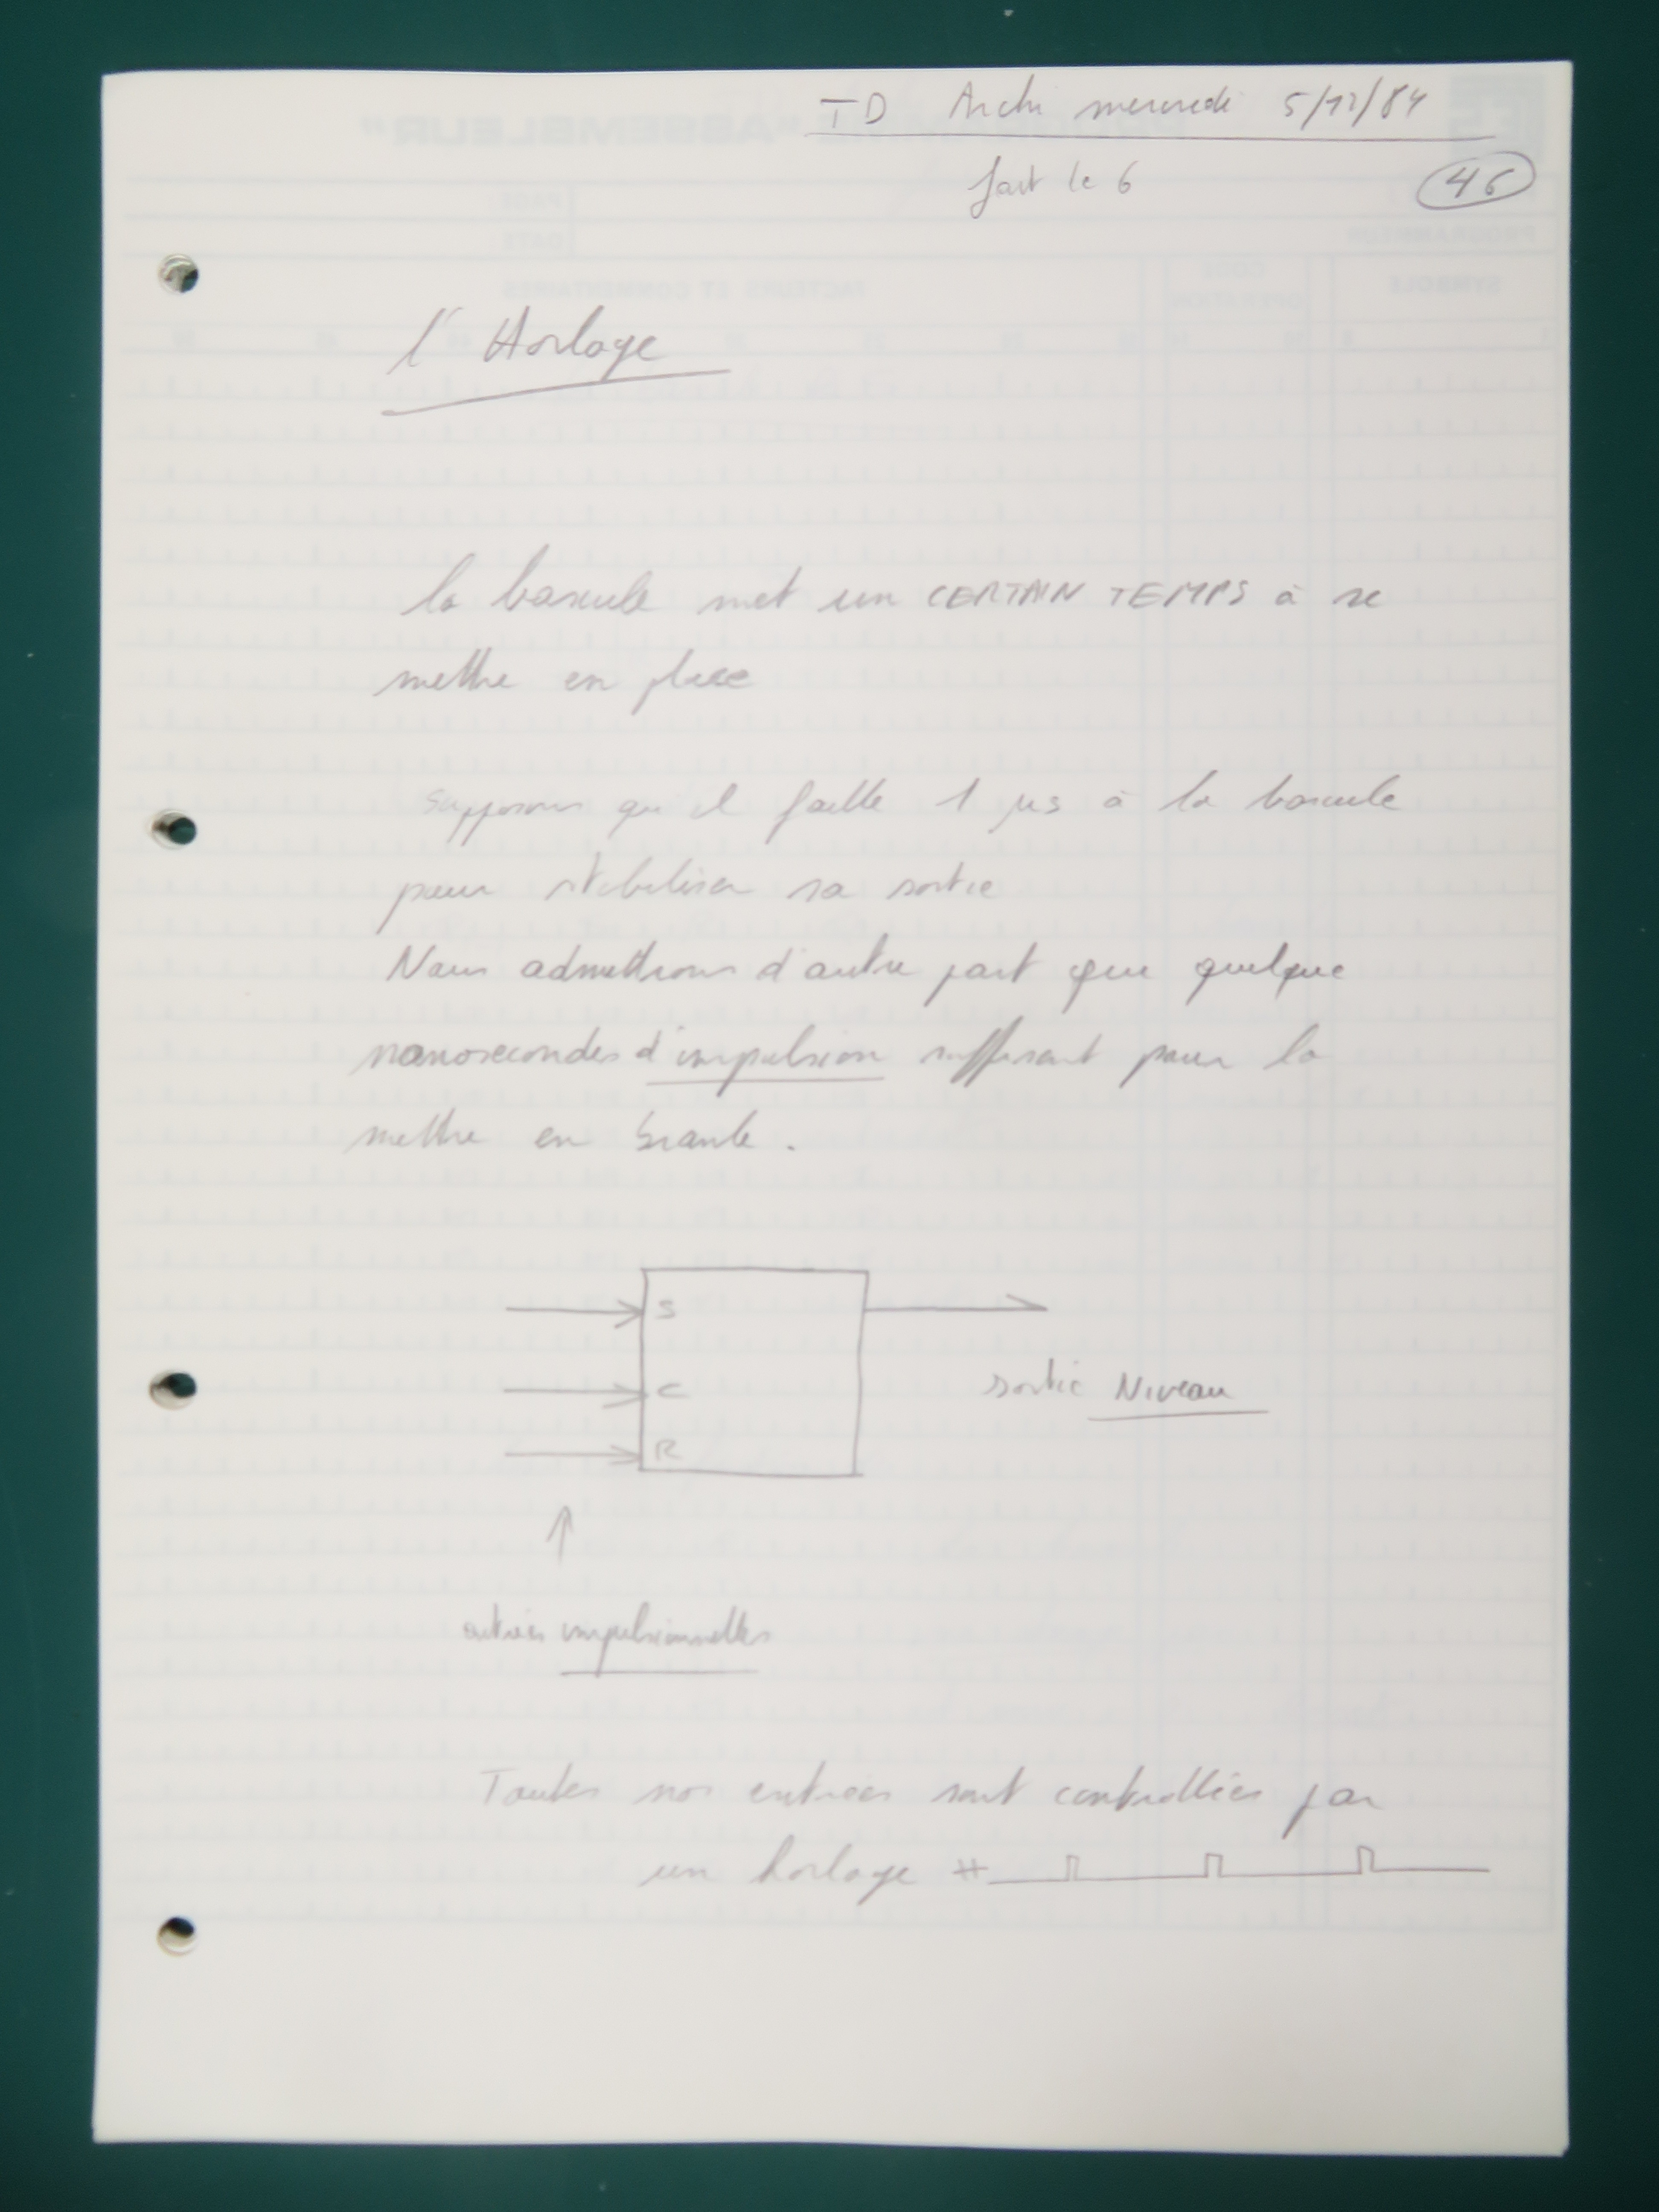 TD Archi mercredi 5/12/84
fait le 6
46
l'Horloge
la bascule met un CERTAIN TEMPS à se
mettre en place
Supposons qu'il faille 1 µs à la bascule
pour stabiliser sa sortie
Nous admettrons d'autre part que quelque
nanosecondes d'impulsion suffisent pour la
mettre en branle.
S
C
sortie Niveau
R
entrées impulsionnelles
Toutes nos entrées sont controllées par
un horloge H